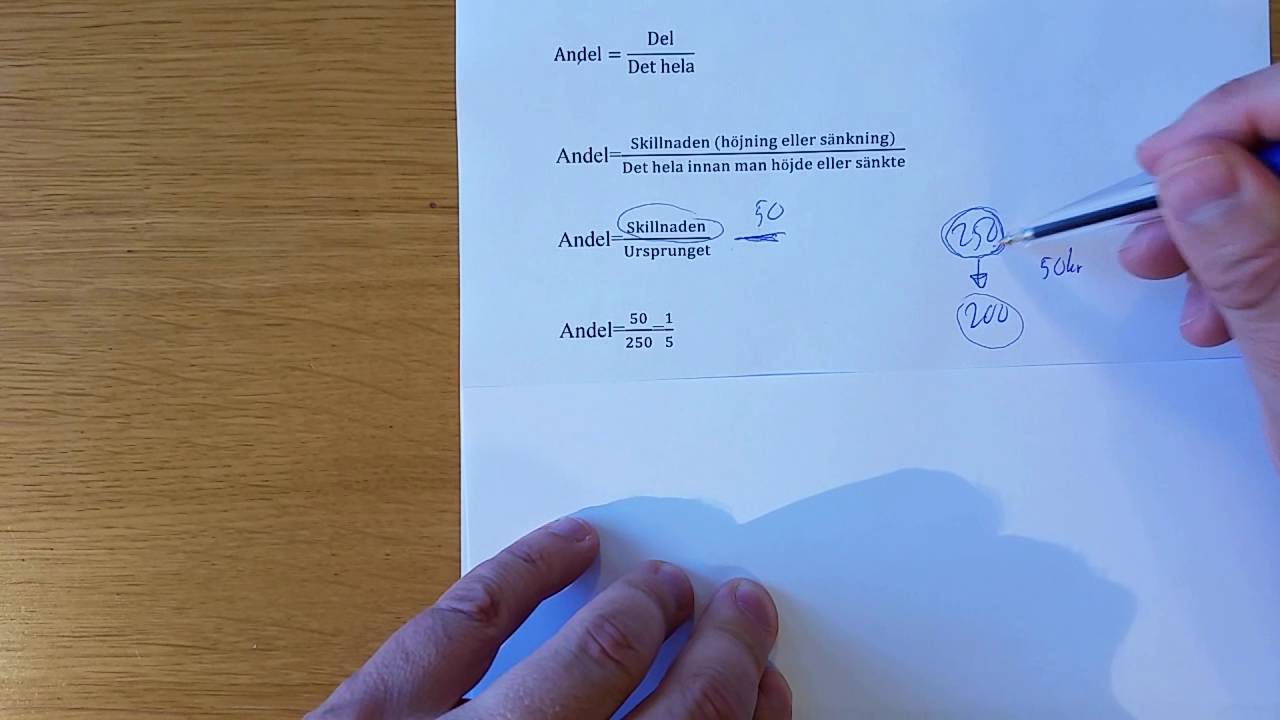 Andel = Del / Det hela
Andel= Skillnaden (höjning eller sänkning) / Det hela innan man höjde eller sänkte
Andel= Skillnaden / Ursprunget
50
250
50kr
200
Andel= 50/250 = 1/5